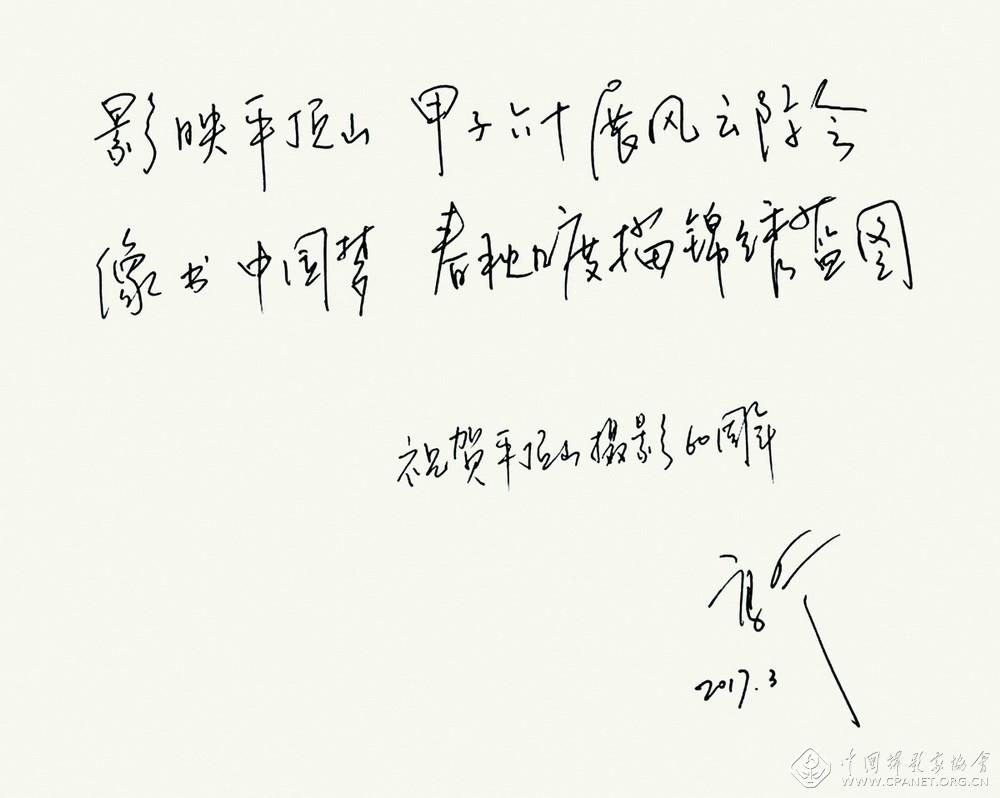 影映平顶山 甲子六十展风云际会
像书中国梦 春秋几度描锦绣蓝图
祝贺平顶山摄影60周年
2017.3
中国摄影家协会
WWW.CPANET.ORG.CN